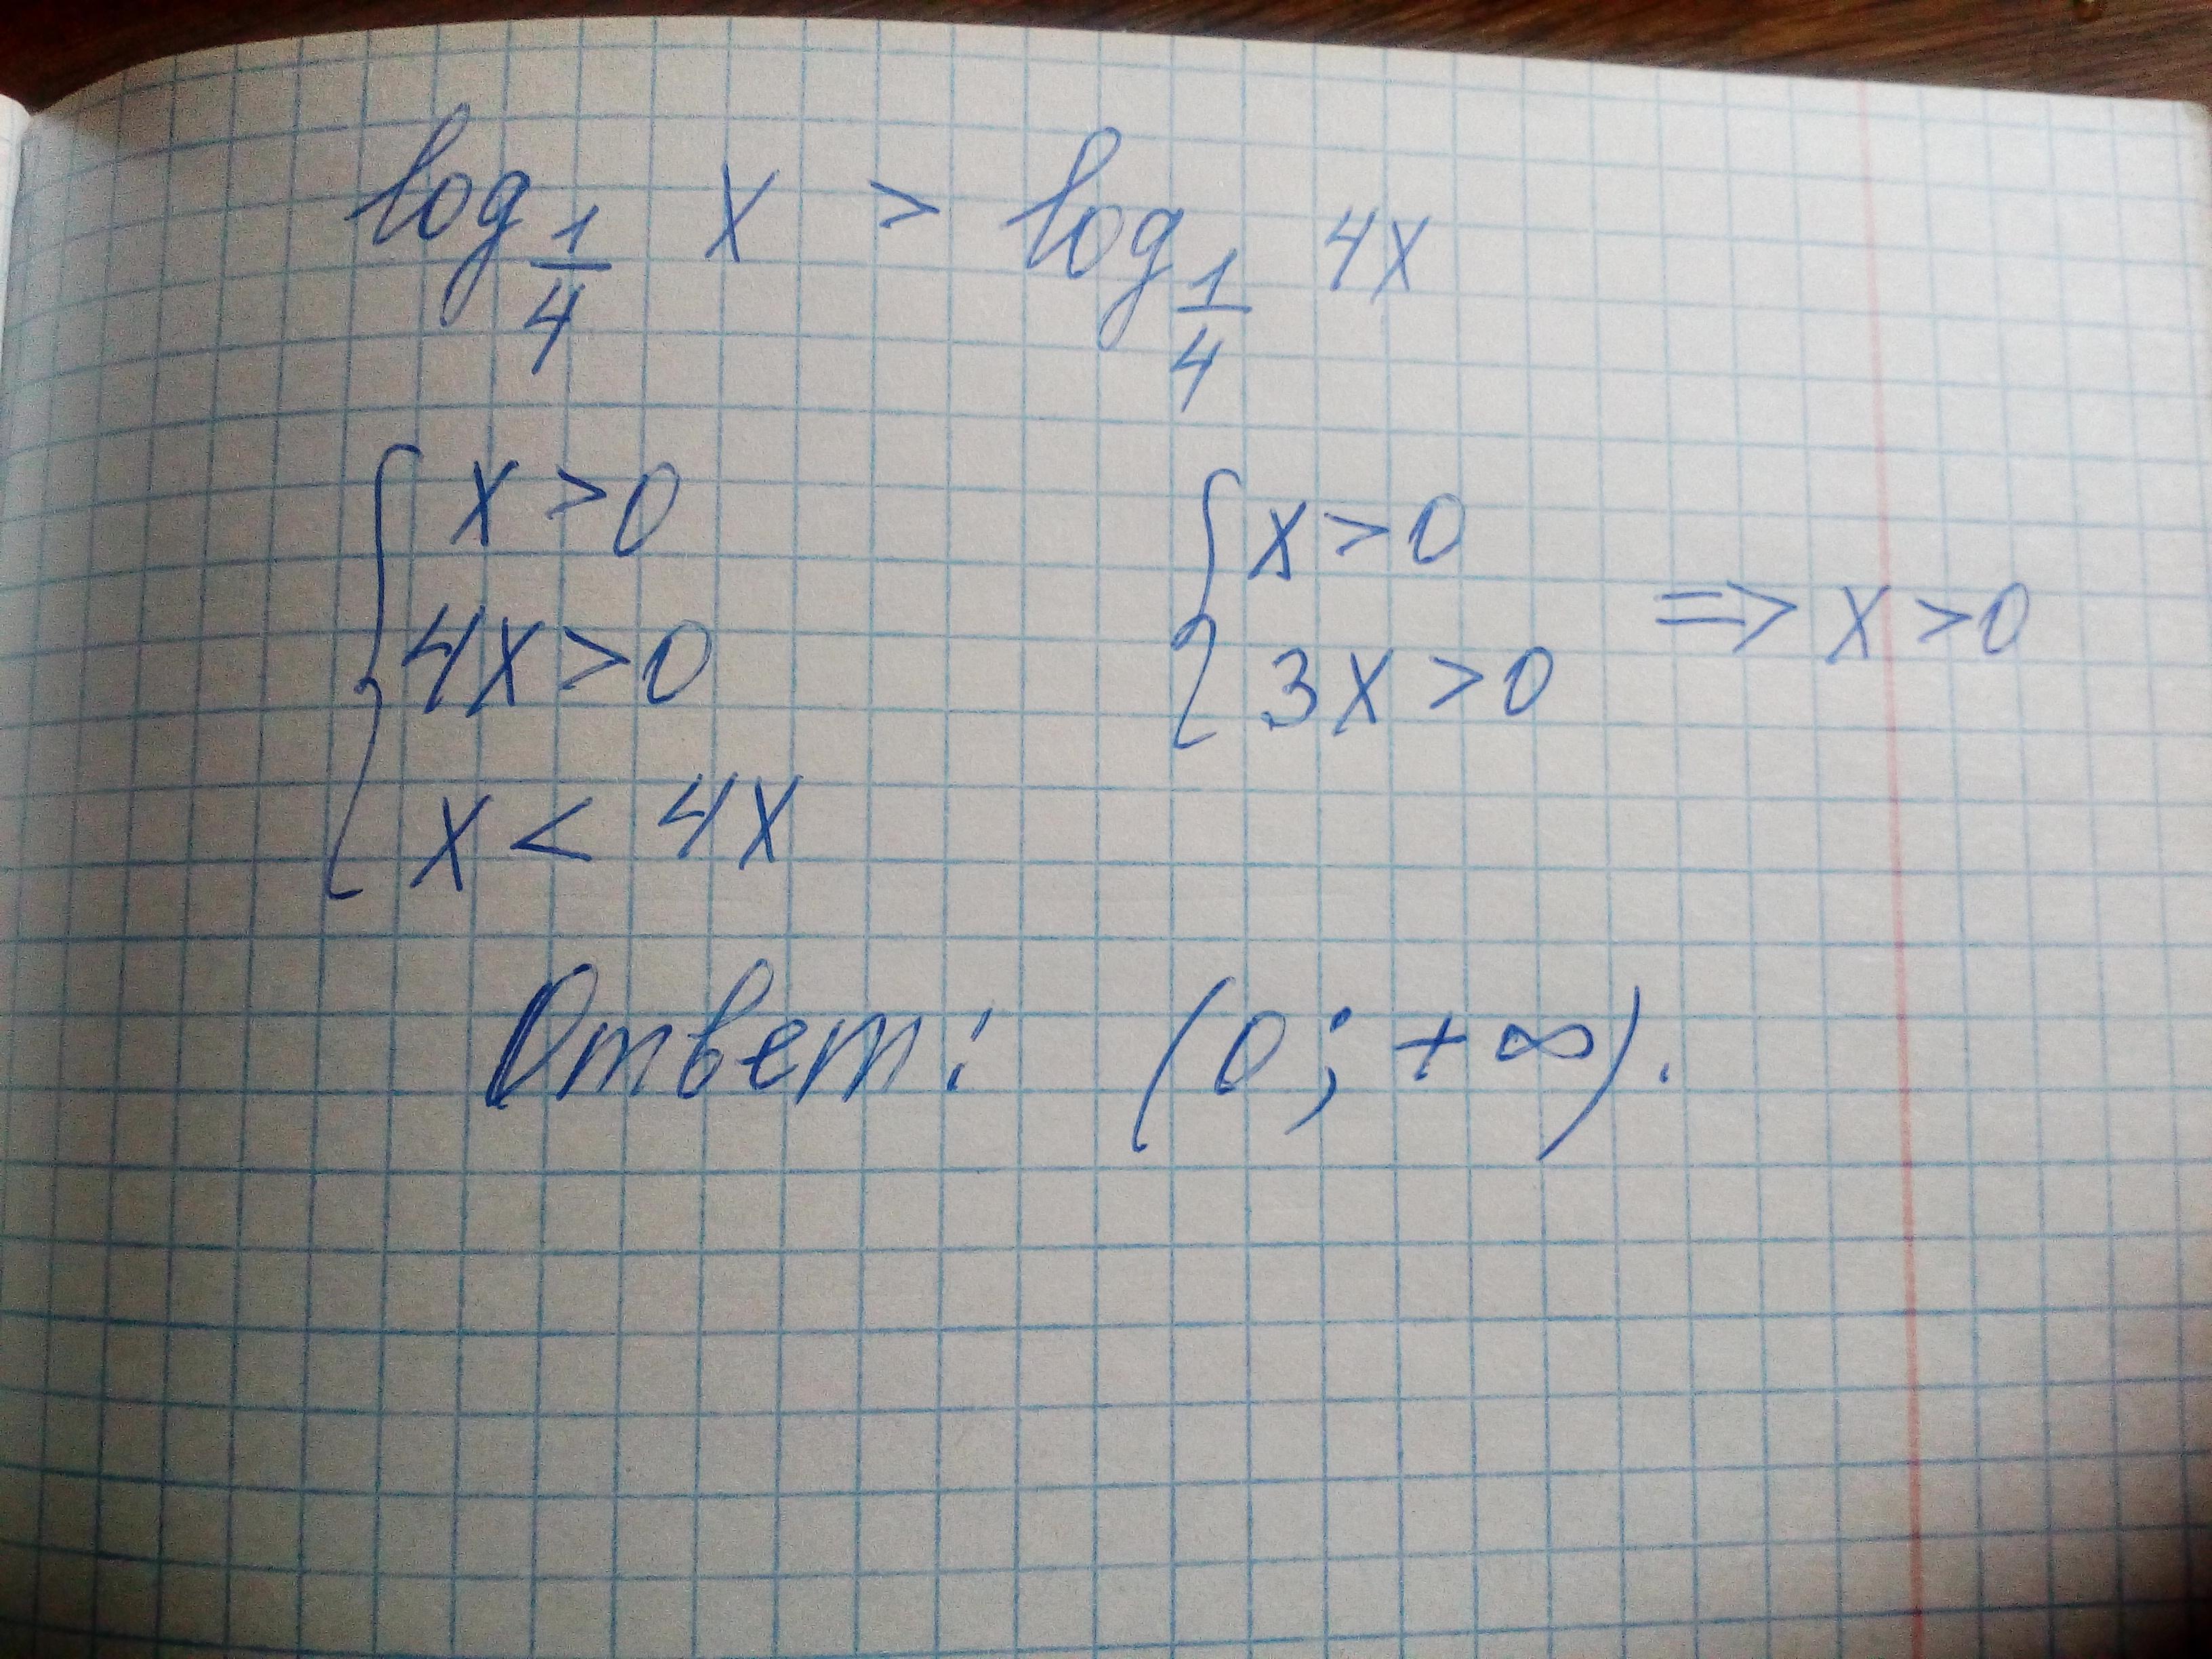 log 1/4 x > log 1/4 4x
{ x > 0
4x > 0
x < 4x
{ x > 0
3x > 0
=> x > 0
Ответ: (0; +∞).